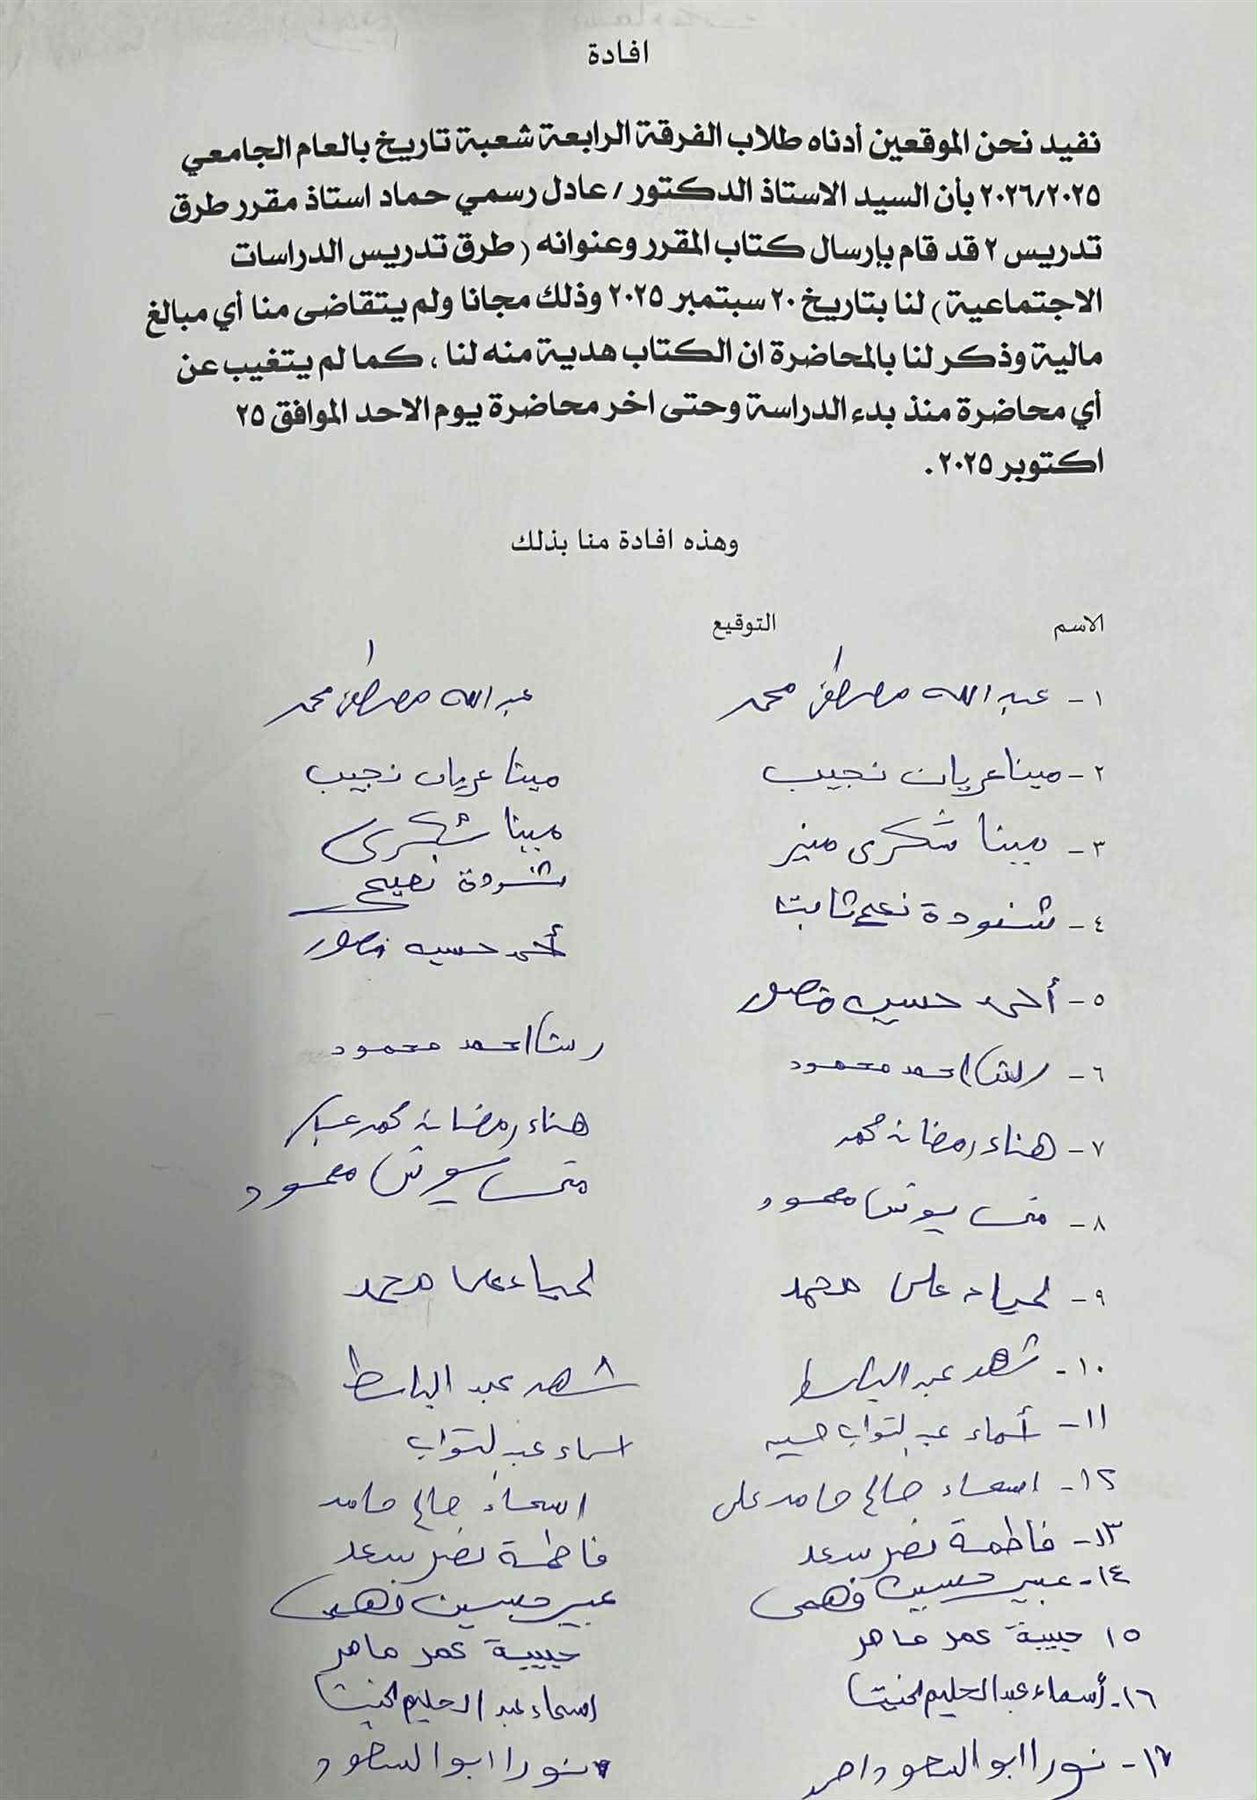 افادة
نفيد نحن الموقعين أدناه طلاب الفرقة الرابعة شعبة تاريخ بالعام الجامعي
٢٠٢٦/٢٠٢٥ بأن السيد الاستاذ الدكتور / عادل رسمي حماد استاذ مقرر طرق
تدريس ٢ قد قام بإرسال كتاب المقرر وعنوانه ( طرق تدريس الدراسات
الاجتماعية ) لنا بتاريخ ٢٠ سبتمبر ٢٠٢٥ وذلك مجانا ولم يتقاضى منا أي مبالغ
مالية وذكر لنا بالمحاضرة ان الكتاب هدية منه لنا ، كما لم يتغيب عن
أي محاضرة منذ بدء الدراسة وحتى اخر محاضرة يوم الاحد الموافق ٢٥
اكتوبر ٢٠٢٥ .
وهذه افادة منا بذلك
الاسم التوقيع
١- عبدالله مصطفى محمد عبدالله مصطفى محمد
٢- مينا عريان نجيب مينا عريان نجيب
٣- مينا شكرى منير مينا شكرى
٤- شنودة ثابت شنودة
٥- أحمد حسين منصور أحمد حسين منصور
٦- رشا احمد محمود رشا احمد محمود
٧- هناء رمضان محمد هناء رمضان محمد
٨- محمود محمود
٩- لمياء على محمد لمياء على محمد
١٠- شهد عبد الباسط شهد عبد الباسط
١١- أسماء عبد التواب حسين اسماء عبد التواب
١٢- اسماء صالح حامد على اسماء صالح حامد
١٣- فاطمة نصر سعد فاطمة نصر سعد
١٤- عبير حسين فهمى عبير حسين فهمى
١٥ حبيبة عمر ماهر حبيبة عمر ماهر
١٦- أسماء عبد الحليم اسماء عبد الحليم
١٧- نورا ابو السعود احمد نورا ابو السعود